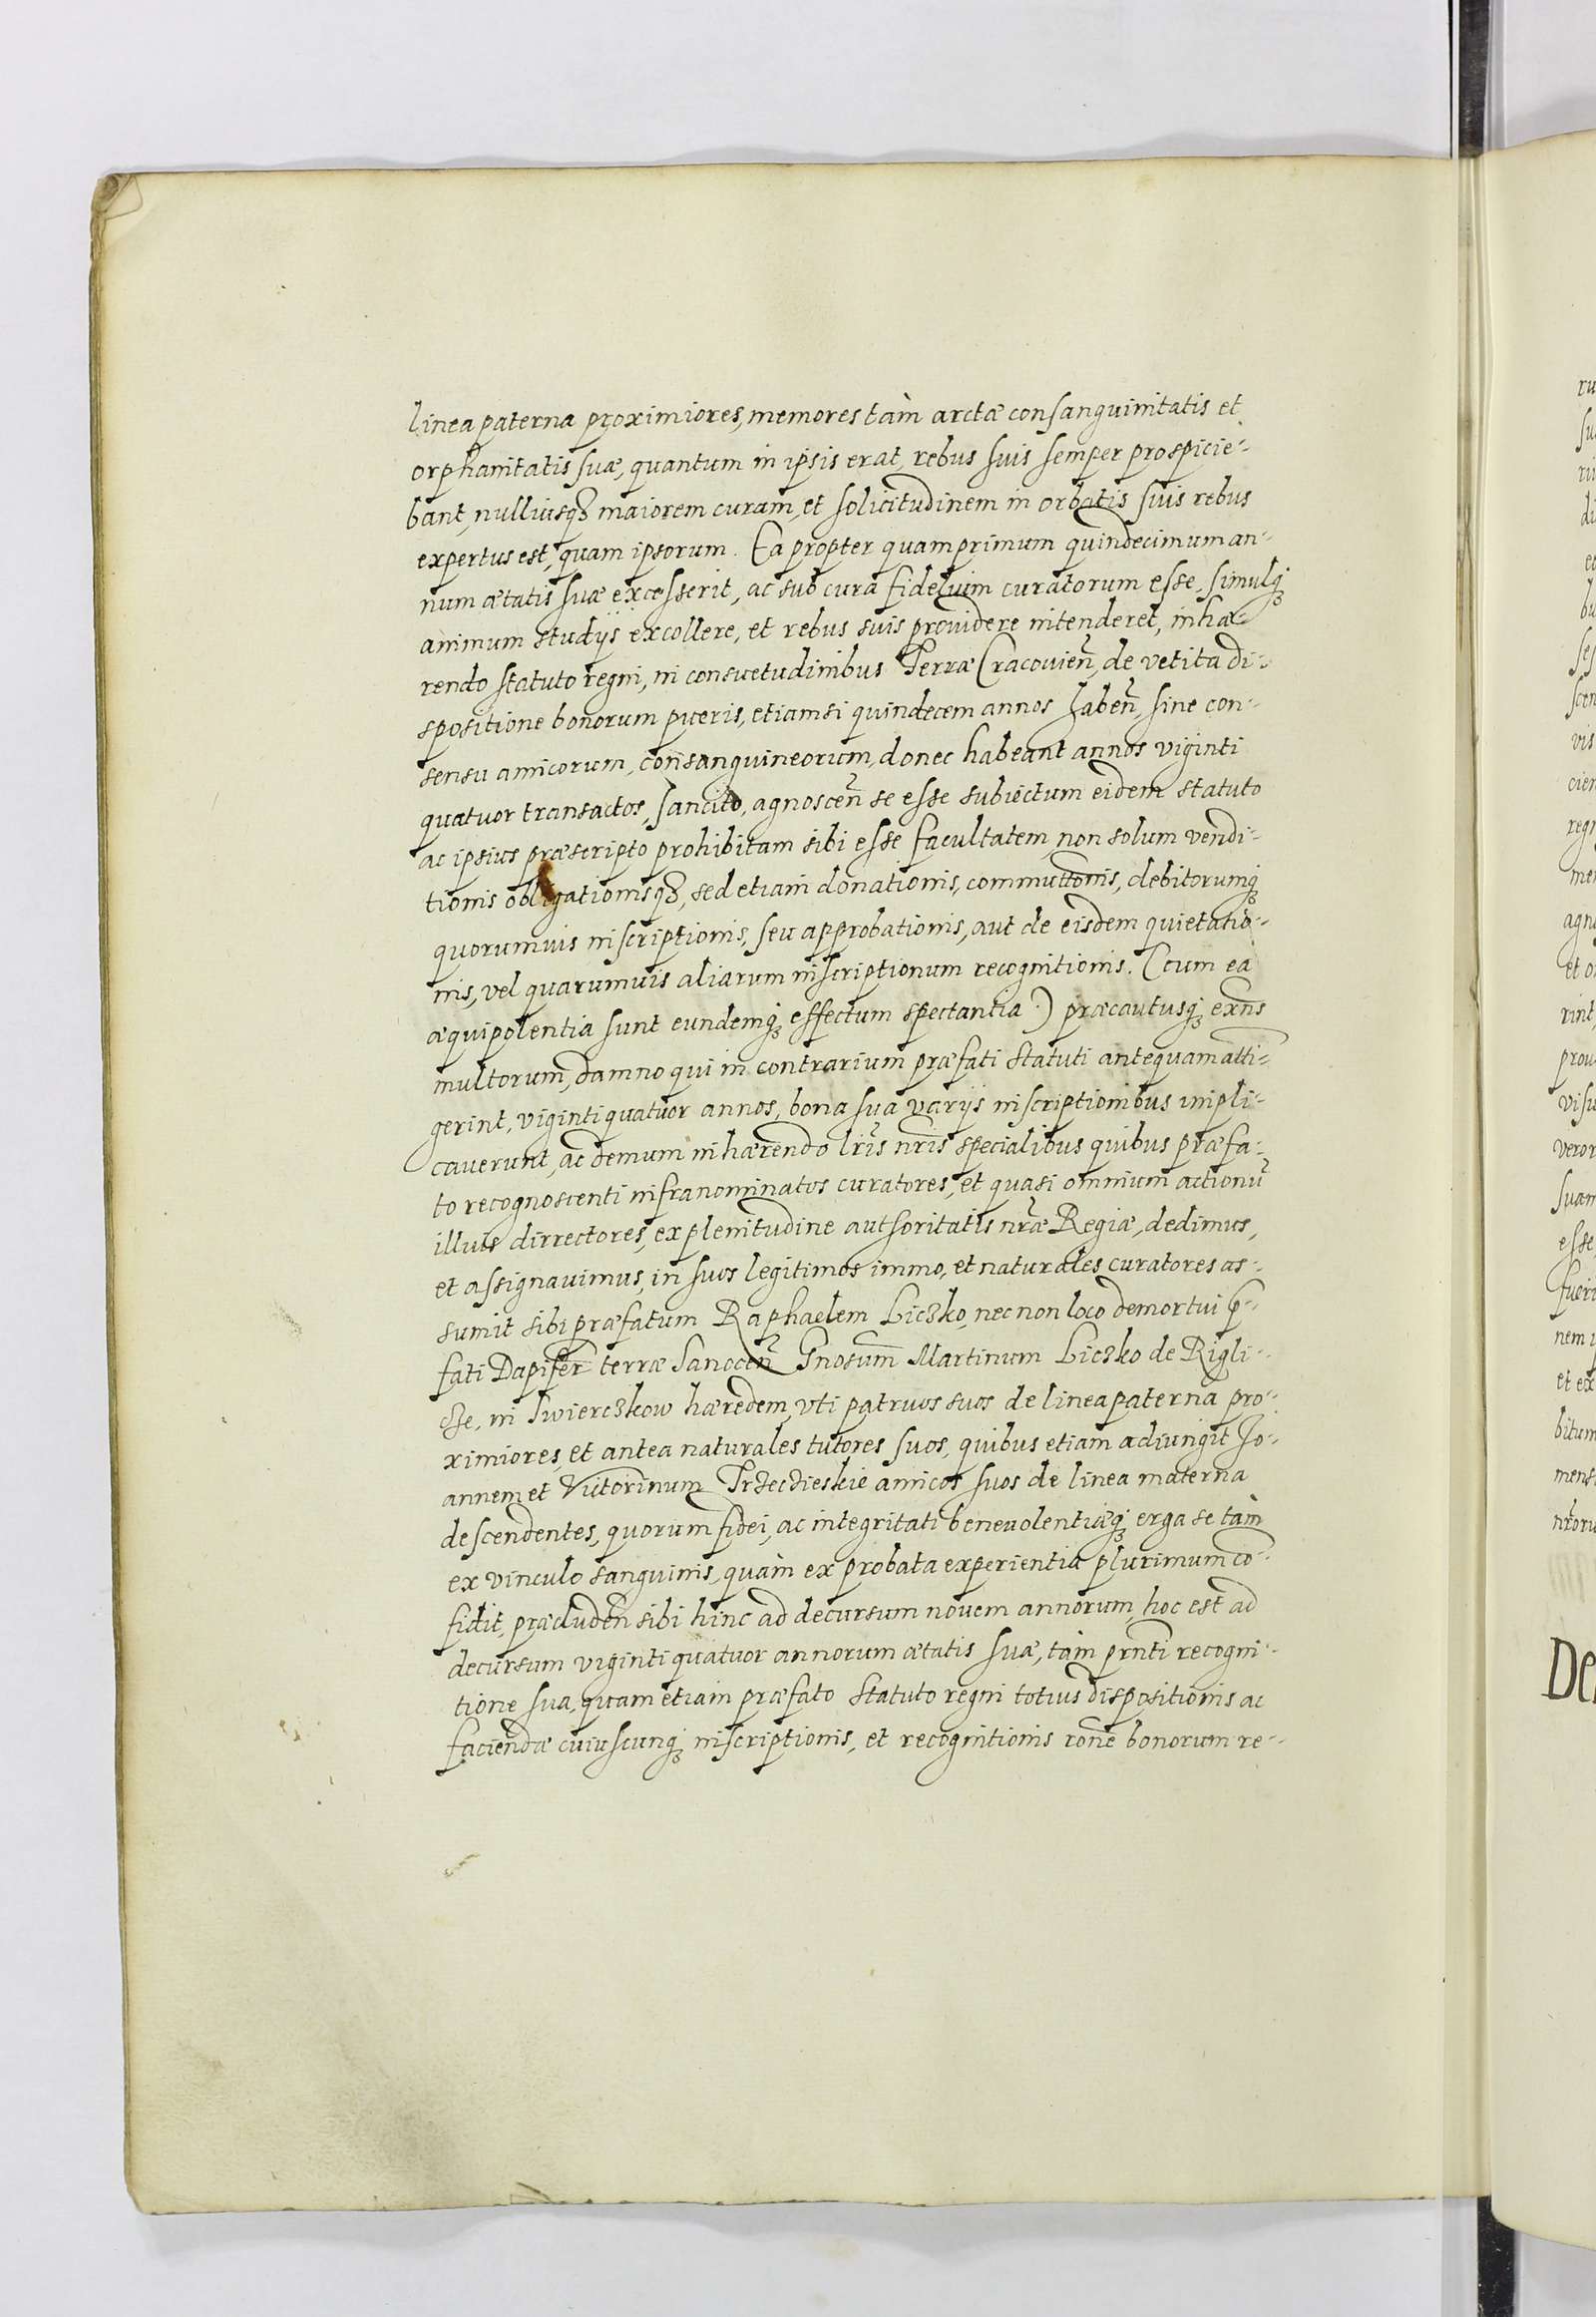 linea paterna proximiores, memores tàm arctæ consanguinitatis et
orphanitatis suæ, quantum in ipsis erat, rebus suis semper prospicie-
bant, nulliusq3 maiorem curam, et solicitudinem in orbatis suis rebus
expertus est, quam ipsorum. Ea propter quamprimum quindecimum an-
num ætatis suæ excesserit, ac sub cura fidelium curatorum esse, simulq3
animum studijs excollere, et rebus suis prouidere intenderet, inhæ-
rendo statuto regni, in consuetudinibus Terræ Cracouieñ, de vetita di-
spositione bonorum pueris, etiamsi quindecem annos habeñ, sine con-
sensu amicorum, consanguineorum, donec habeant annos viginti
quatuor transactos, sancito, agnosceñ se esse subiectum eidem statuto
ac ipsius præscripto prohibitam sibi esse facultatem, non solum vendi-
tionis obligationisq3, sed etiam donationis, commuttonis, debitorumq3
quorumuis inscriptionis, seu approbationis, aut de eisdem quietatio-
nis, vel quarumuis aliarum inscriptionum recognitionis. (cum ea
æquipolentia sunt eundemq3 effectum spectantia.) præcautusq3 exñs
multorum, damno qui in contrarium præfati statuti antequam atti-
gerint, viginti quatuor annos, bona sua varijs inscriptionibus impli-
cauerunt, ac demum inhærendo lr̃is nr̃is specialibus quibus præfa-
to recognoscenti infranominatos curatores, et quasi omnium actionũ
illius dirrectores, ex plenitudine authoritatis nr̃æ Regiæ, dedimus,
et assignauimus, in suos legitimos immo, et naturales curatores as-
sumit sibi præfatum Raphaelem Liczko, nec non loco demortui p̃-
fati Dapifer̃ terræ Sanoceñ Gnosum̃ Martinum Liczko de Rigli-
cze, in Swierczkow hæredem, vti patruos suos de linea paterna pro-
ximiores, et antea naturales tutores suos, quibus etiam adiungit Jo-
annem et Victorinum Trzecieskie amicos suos de linea materna
descendentes, quorum fidei, ac integritati beneuolentiæq3 erga se tàm
ex vinculo sanguinis, quàm ex probata experientia plurimum cõ-
fidit, præcludeñ sibi hinc ad decursum nouem annorum, hoc est ad
decursum viginti quatuor annorum ætatis suæ, tàm prñti recogni-
tione sua, quam etiam præfato statuto regni totius dispositionis ac
faciendæ cuiuscunq3 inscriptionis, et recognitionis rõne bonorum re-